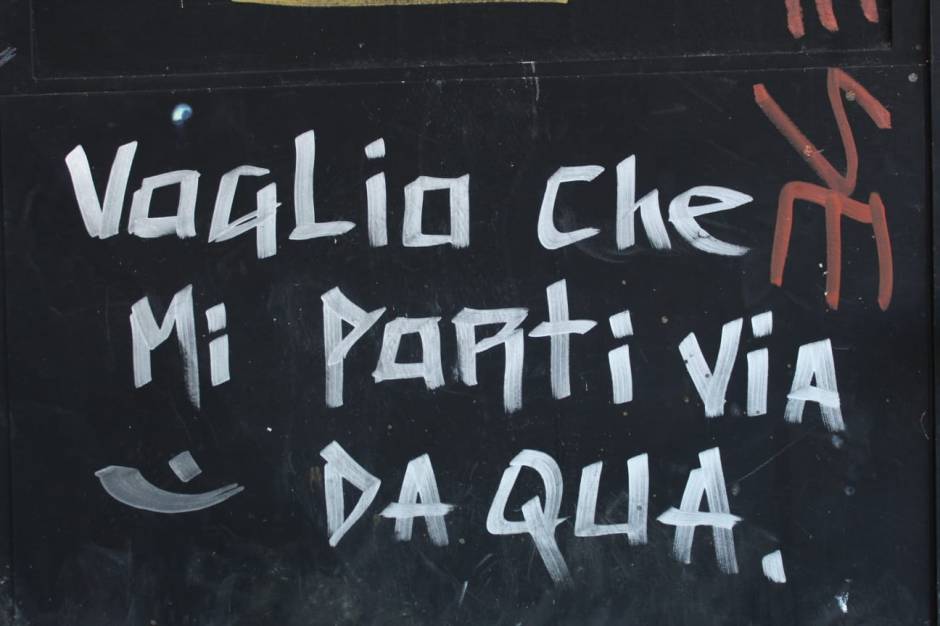 VoGLio Che
Mi PoRti ViA
DA QUA.